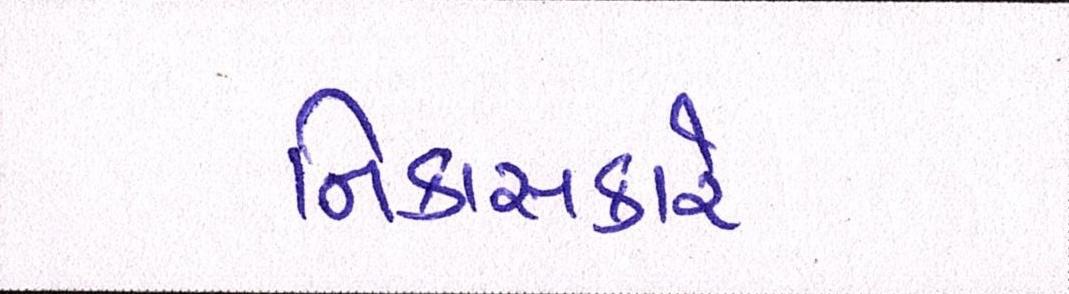 નિકાસકારે